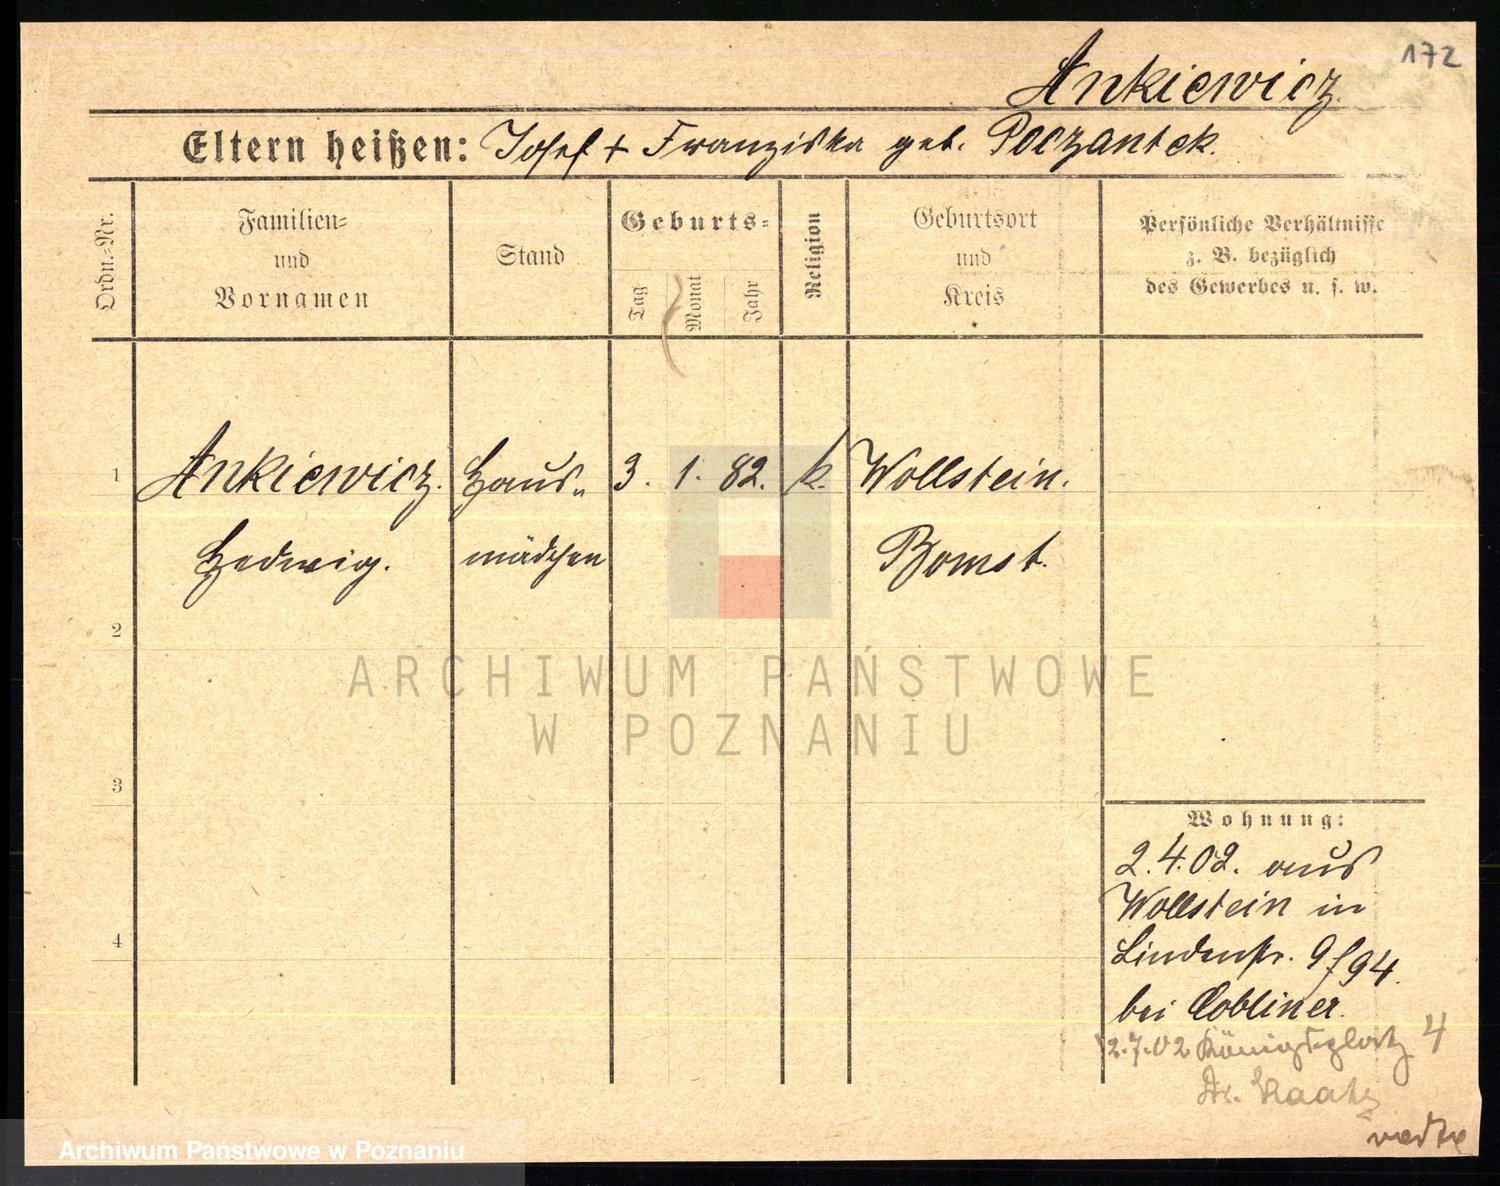 172
Ankiewicz.
Eltern heißen: Josef + Franziska geb. Poczantek.
Ordn.=Nr.
Familien=
und
Vornamen
Stand
Geburts=
Tag
Monat
Jahr
Religion
Geburtsort
und
Kreis
Persönliche Verhältnisse
z. B. bezüglich
des Gewerbes u. s. w.
1 Ankiewicz. Haus= 3. 1. 82. k. Wollstein.
Hedwig. mädchen Bomst.
2
ARCHIWUM PAŃSTWOWE
W POZNANIU
3
Wohnung:
2.4.02. aus
Wollstein in
4
Lindenstr. 9/94.
bei Cobliner.
2.7.02 Königsplatz 4
Dr.
Archiwum Państwowe w Poznaniu